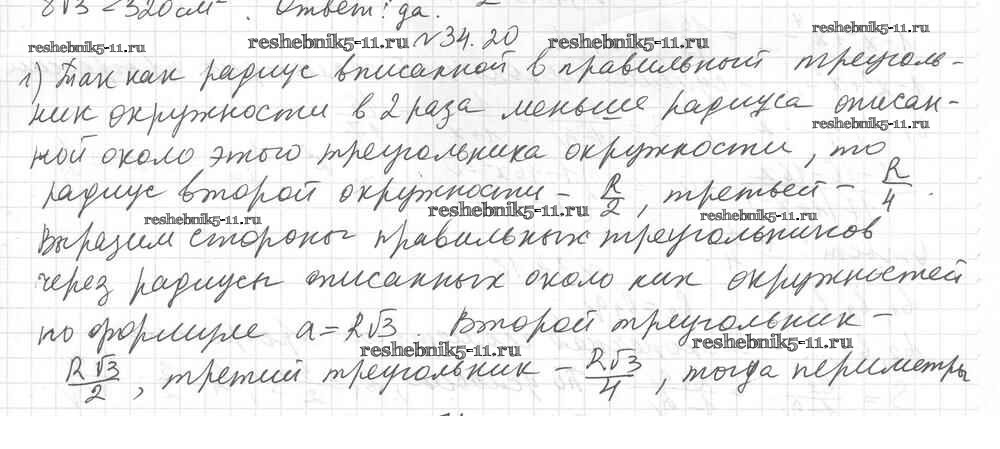 8√3 < 320 см². Ответ: да.
reshebnik5-11.ru №34.20 reshebnik5-11.ru reshebnik5-11.ru
reshebnik5-11.ru
1) Так как радиус вписанной в правильный треуголь-
ник окружности в 2 раза меньше радиуса описан-
reshebnik5-11.ru
ной около этого треугольника окружности, то
радиус второй окружности – R/2, третьей – R/4.
reshebnik5-11.ru reshebnik5-11.ru reshebnik5-11.ru
Выразим стороны правильных треугольников
через радиусы описанных около них окружностей
по формуле a = R√3. Второй треугольник –
reshebnik5-11.ru reshebnik5-11.ru
R√3/2, третий треугольник – R√3/4, тогда периметры